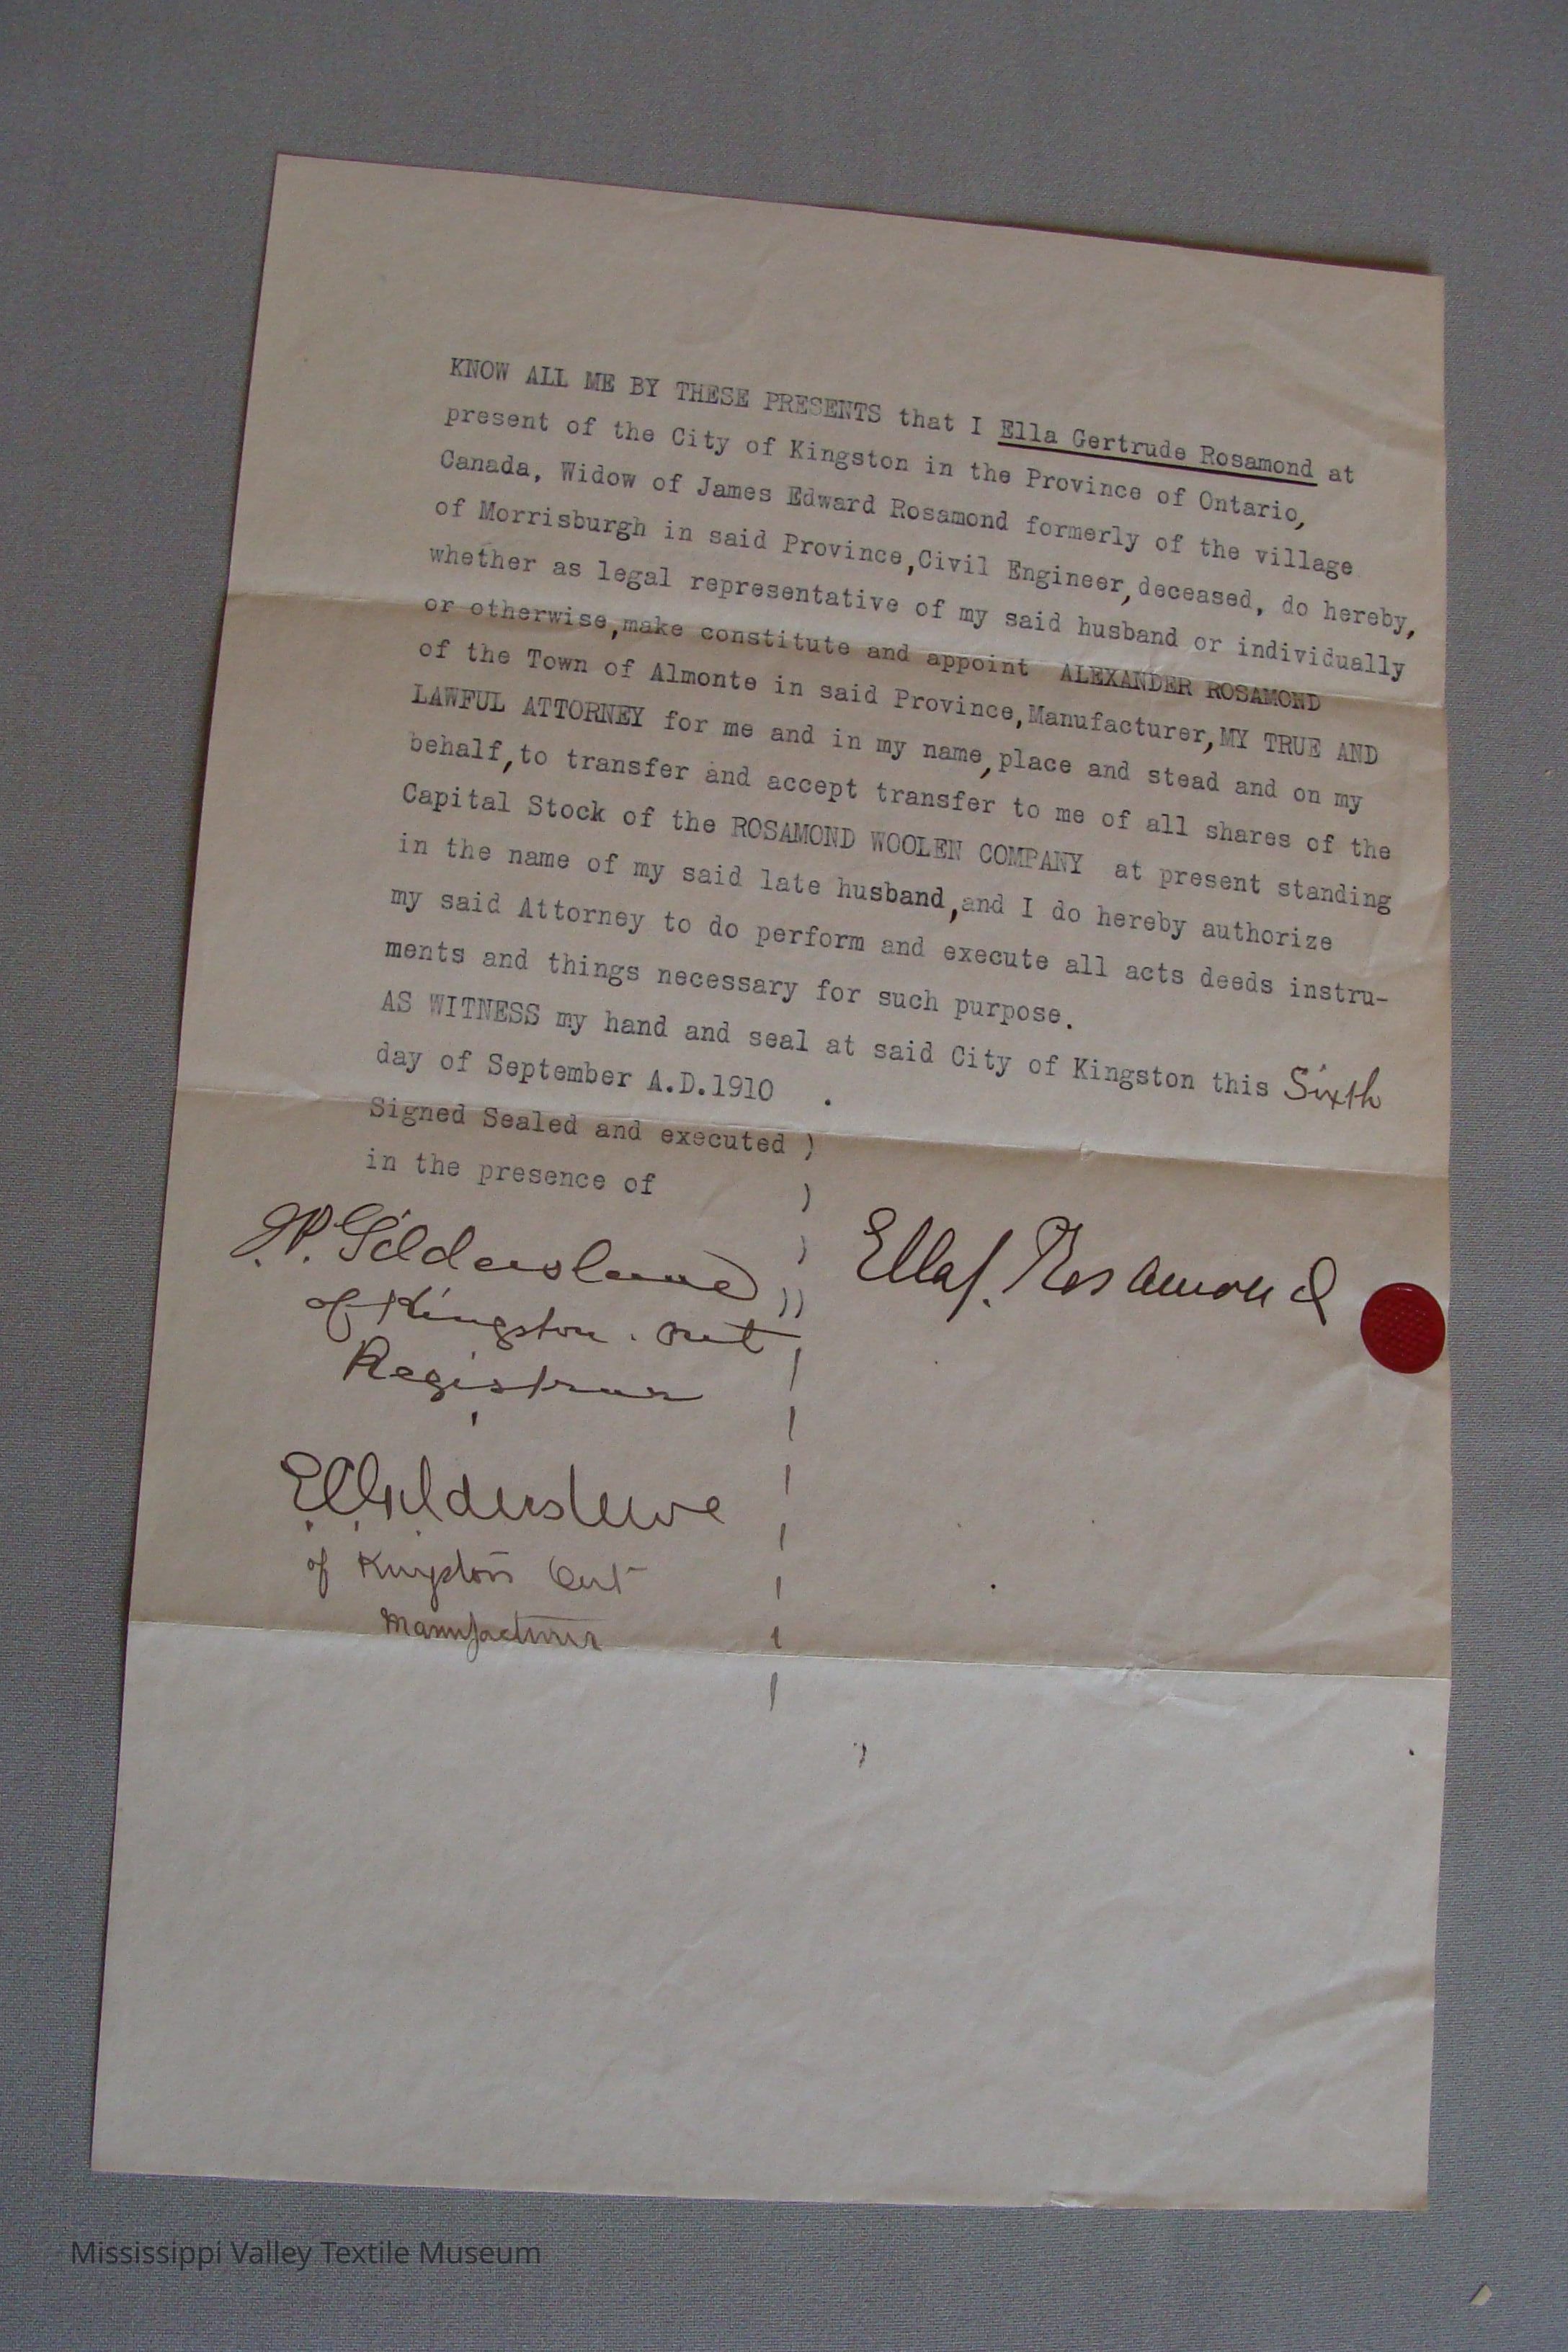 KNOW ALL ME BY THESE PRESENTS that I Ella Gertrude Rosamond at
present of the City of Kingston in the Province of Ontario,
Canada, Widow of James Edward Rosamond formerly of the village
of Morrisburgh in said Province,Civil Engineer,deceased, do hereby,
whether as legal representative of my said husband or individually
or otherwise,make constitute and appoint ALEXANDER ROSAMOND
of the Town of Almonte in said Province,Manufacturer,MY TRUE AND
LAWFUL ATTORNEY for me and in my name,place and stead and on my
behalf,to transfer and accept transfer to me of all shares of the
Capital Stock of the ROSAMOND WOOLEN COMPANY at present standing
in the name of my said late husband,and I do hereby authorize
my said Attorney to do perform and execute all acts deeds instru-
ments and things necessary for such purpose.
AS WITNESS my hand and seal at said City of Kingston this Sixth
day of September A.D.1910 .
Signed Sealed and executed )
in the presence of )
J.P. Gildersleeve
of Kingston. Ont
Registrar
Ella G. Rosamond
E.C. Gildersleeve
of Kingston Ont
Manufacturer
Mississippi Valley Textile Museum